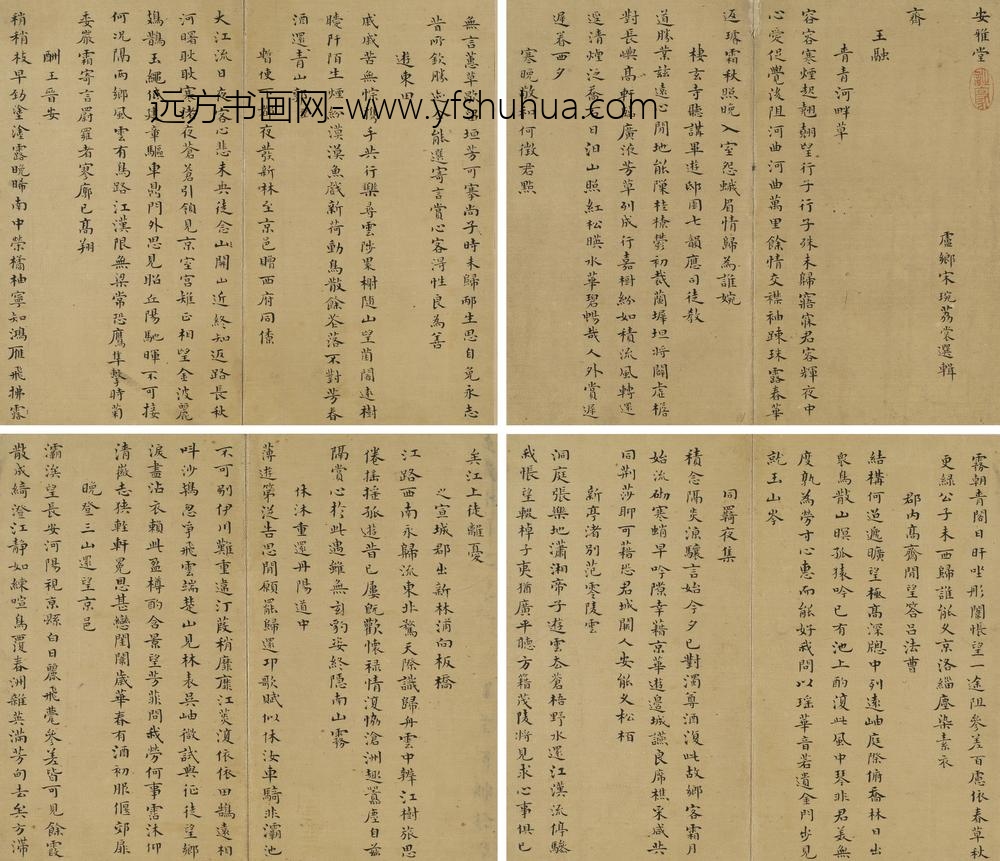 安雅堂
虛鄉宋琬荔裳選輯
齊
王融
青青河畔草
容容寒煙起翹翹望行子行子殊未歸寤寐君容輝夜中
心愛促覺後阻河曲河曲萬里餘情交襟袖疎珠露春華
返璿霜秋照晚入室怨蛾眉情歸為誰婉
棲玄寺聽講畢遊邸園七韻應司徒教
道勝業茲遠心閒地能隟桂橑鬱初裁蘭墀坦將闢虛檐
對長嶼高軒臨廣液芳草列成行嘉樹紛如積流風轉還
逕清煙泛喬石日汨山照紅松暎水華碧暢哉人外賞遲
遲眷西夕
寒晚敬和何徵君點
無言蕙草歇留垣芳可搴尚子時未歸邴生思自免永志
昔所欽勝迹能選寄言賞心客淂性良為善
遊東田
慼慼苦無悰攜手共行樂尋雲陟累榭隨山望菌閣遠樹
曖阡陌生煙紛漠漠魚戲新荷動鳥散餘花落不對芳春
酒還青山
暫使下夜發新林至京邑贈西府同僚
大江流日夜客心悲未央徒念關山近終知返路長秋
河曙耿耿寒渚夜蒼蒼引領見京室宮雉正相望金波麗
鳷鵲玉繩低建章驅車鼎門外思見昭丘陽馳暉不可接
何況隔兩鄉風雲有鳥路江漢限無梁常恐鷹隼擊時菊
委嚴霜寄言罻羅者寥廓已高翔
酬王晉安
稍稍枝早勁塗塗露晚晞南中榮橘柚寧知鴻雁飛拂露
霧朝青閣日旰坐彤闈悵望一途阻參差百慮依春草秋
更綠公子未西歸誰能久京洛緇塵染素衣
郡內高齋閒望答呂法曹
結構何迢遰曠望極高深牕中列遠岫庭際俯喬林日出
眾鳥散山暝孤猿吟已有池上酌復此風中琴非君美無
度孰為勞寸心惠而能好我問以瑤華音若遺金門步見
就玉山岑
同羈夜集
積念隔炎涼驤言始今夕已對濁尊酒復此故鄉客霜月
始流砌寒蛸早吟隙幸藉京華遊邊城讌良席樵采咸共
同荊莎聊可藉恐君城闕人安能久松栢
新亭渚別范零陵雲
洞庭張樂地瀟湘帝子遊雲去蒼梧野水還江漢流停驂
我悵望輟棹子夷猶廣平聽方籍茂陵將見求心事俱已
矣江上徒離憂
之宣城郡出新林浦向板橋
江路西南永歸流東北騖天際識歸舟雲中辨江樹旅思
倦搖搖孤遊昔已屢既歡懷祿情復協滄洲趣囂塵自茲
隔賞心於此遇雖無玄豹姿終隱南山霧
休沐重還丹陽道中
薄遊第從告思閒願罷歸還邛歌賦似休汝車騎非灞池
不可別伊川難重違汀葭稍靡靡江菼復依依田鵠遠相
叫沙鴇忽爭飛雲端楚山見林表吳岫微試與征徒望鄉
淚盡沾衣賴此盈樽酌含景望芳菲問我勞何事霑沐仰
清徽志狹輕軒冕恩甚戀閨闈歲華春有酒初服偃郊扉
晚登三山還望京邑
灞涘望長安河陽視京縣白日麗飛甍參差皆可見餘霞
散成綺澄江靜如練喧鳥覆春洲雜英滿芳甸去矣方滯
远方书画网-www.yfshuhua.com